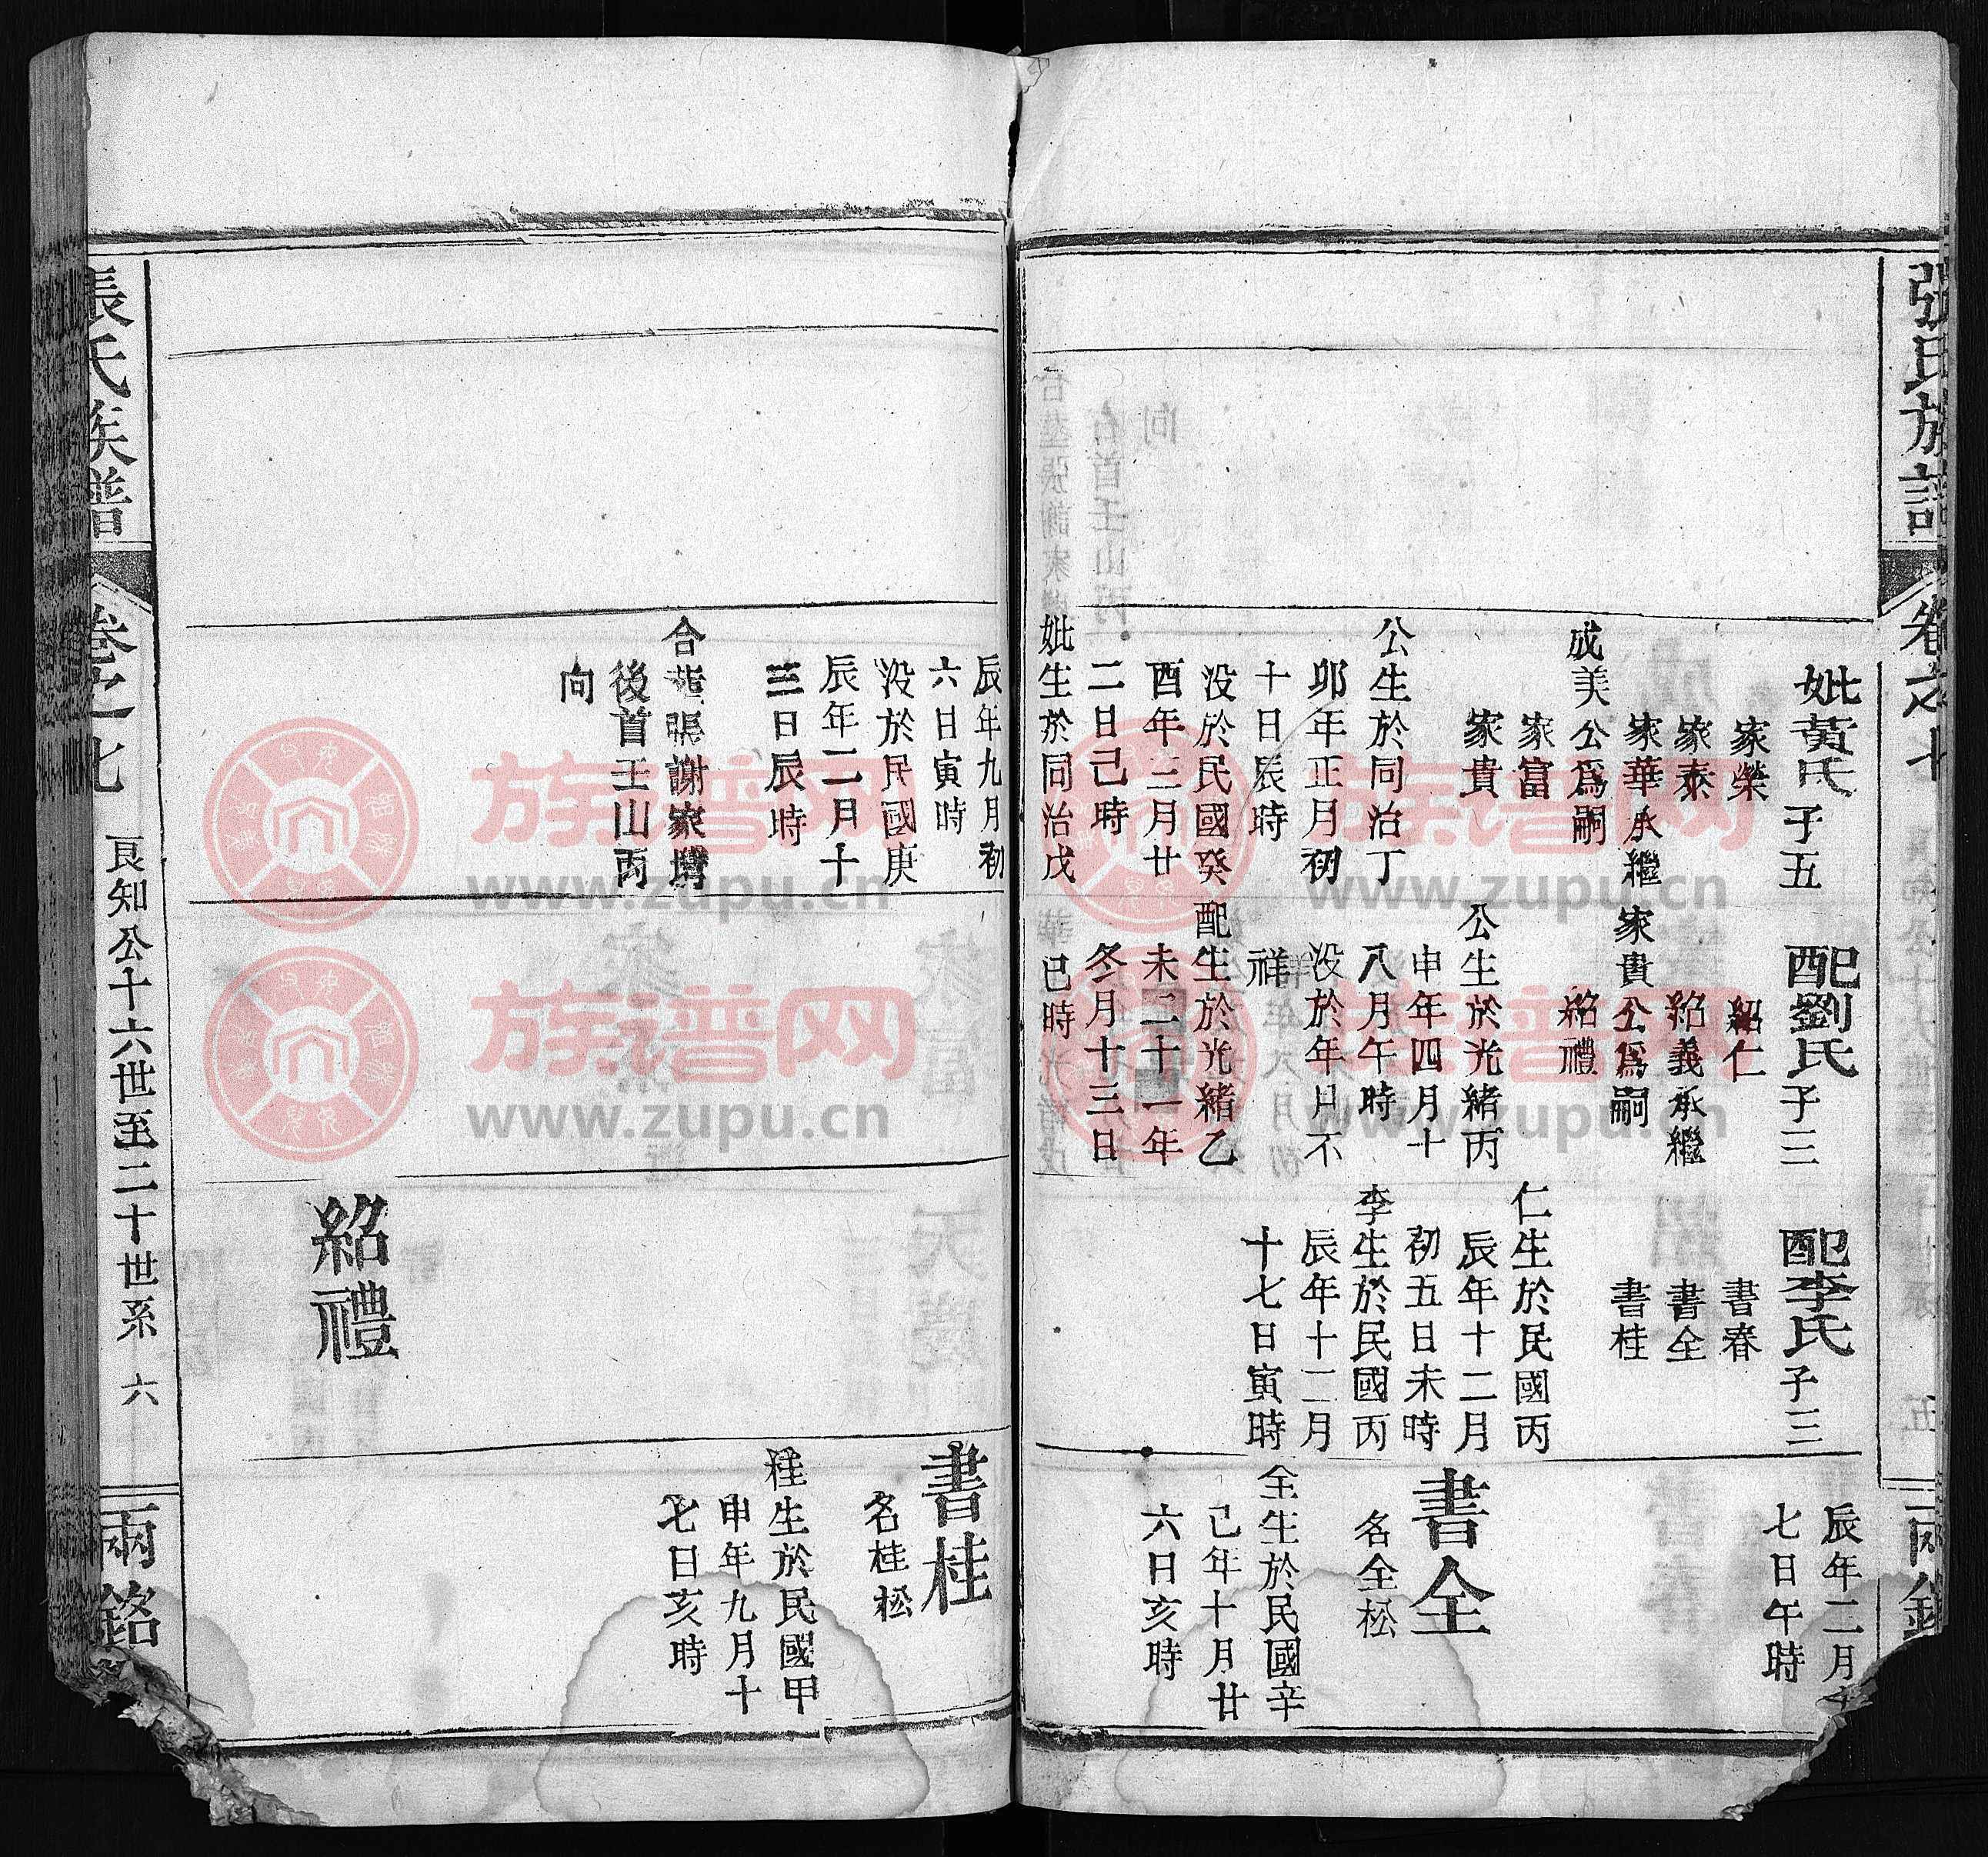 張氏族譜
卷之七
妣黃氏子五
家榮
家泰
家華承繼
成美公為嗣
家富
家貴
公生於同治丁
卯年正月初
十日辰時
没於民國癸
酉年三月廿
二日己時
妣生於同治戊
配劉氏子三
紹仁
紹義承繼
家貴公為嗣
紹禮
公生於光緒丙
申年四月十
八月午時
没於年月不
祥
配生於光緒乙
未二十一年
冬月十三日
巳時
配李氏子三
書春
書全
書桂
仁生於民國丙
辰年十二月
初五日未時
李生於民國丙
辰年十二月
十七日寅時
辰年二月
七日午時
書全
名全松
全生於民國辛
己年十月廿
六日亥時
辰年九月初
六日寅時
没於民國庚
辰年二月十
三日辰時
合塋張謝家壪
後首壬山丙
向
紹禮
書桂
名桂松
桂生於民國甲
申年九月十
七日亥時
張氏族譜
卷之七
良知公十六世至二十世系 六
兩銘
族谱网
www.zupu.cn
族谱网
www.zupu.cn
族谱网
www.zupu.cn
族谱网
www.zupu.cn